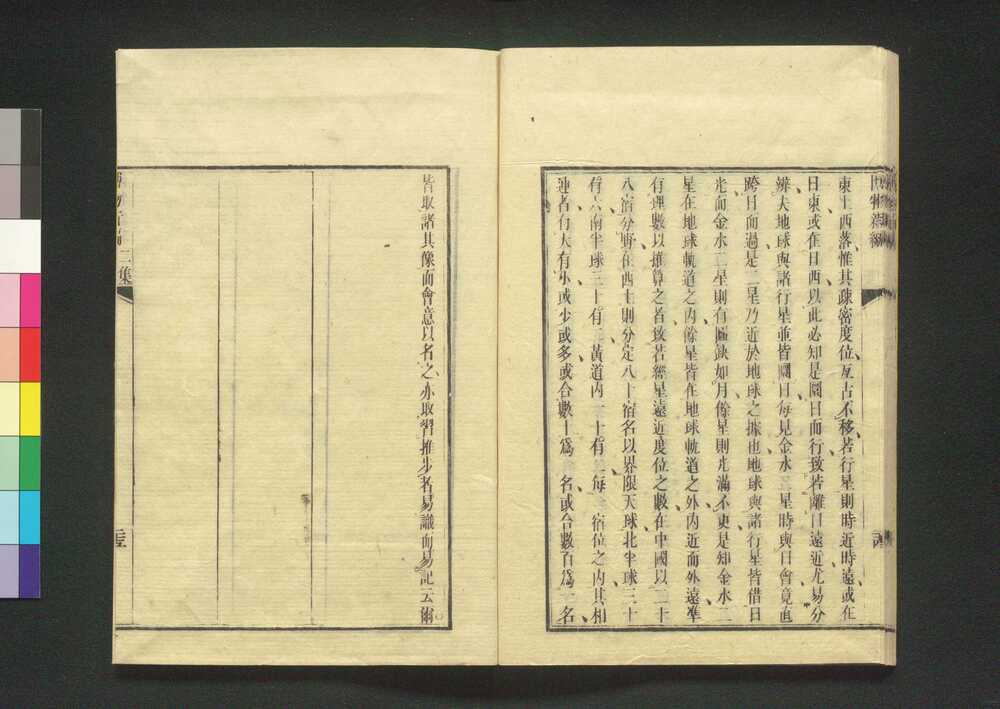 東上西落惟其疎密度位亙古不移若行星則時近時遠或在
日東或在日西以此必知是圜日而行致若離日遠近尤易分
辨夫地球與諸行星並皆圜日每見金水二星時與日會竟直
跨日而過是二星乃近於地球之據也地球與諸行星皆借日
光而金水二星則有圓缺如月餘星則光滿不更是知金水二
星在地球軌道之內餘星皆在地球軌道之外內近而外遠準
有理數以推算之者致若經星遠近度位之數在中國以二十
八宿分野在西士則分定八十宿名以界限天球北半球三十
有六南半球三十有三黃道內一十有二每一宿位之內其相
連者有大有小或少或多或合數十爲一名或合數百爲一名
皆取諸其像而會意以名之亦取習推步者易識而易記云爾
博物新編二集